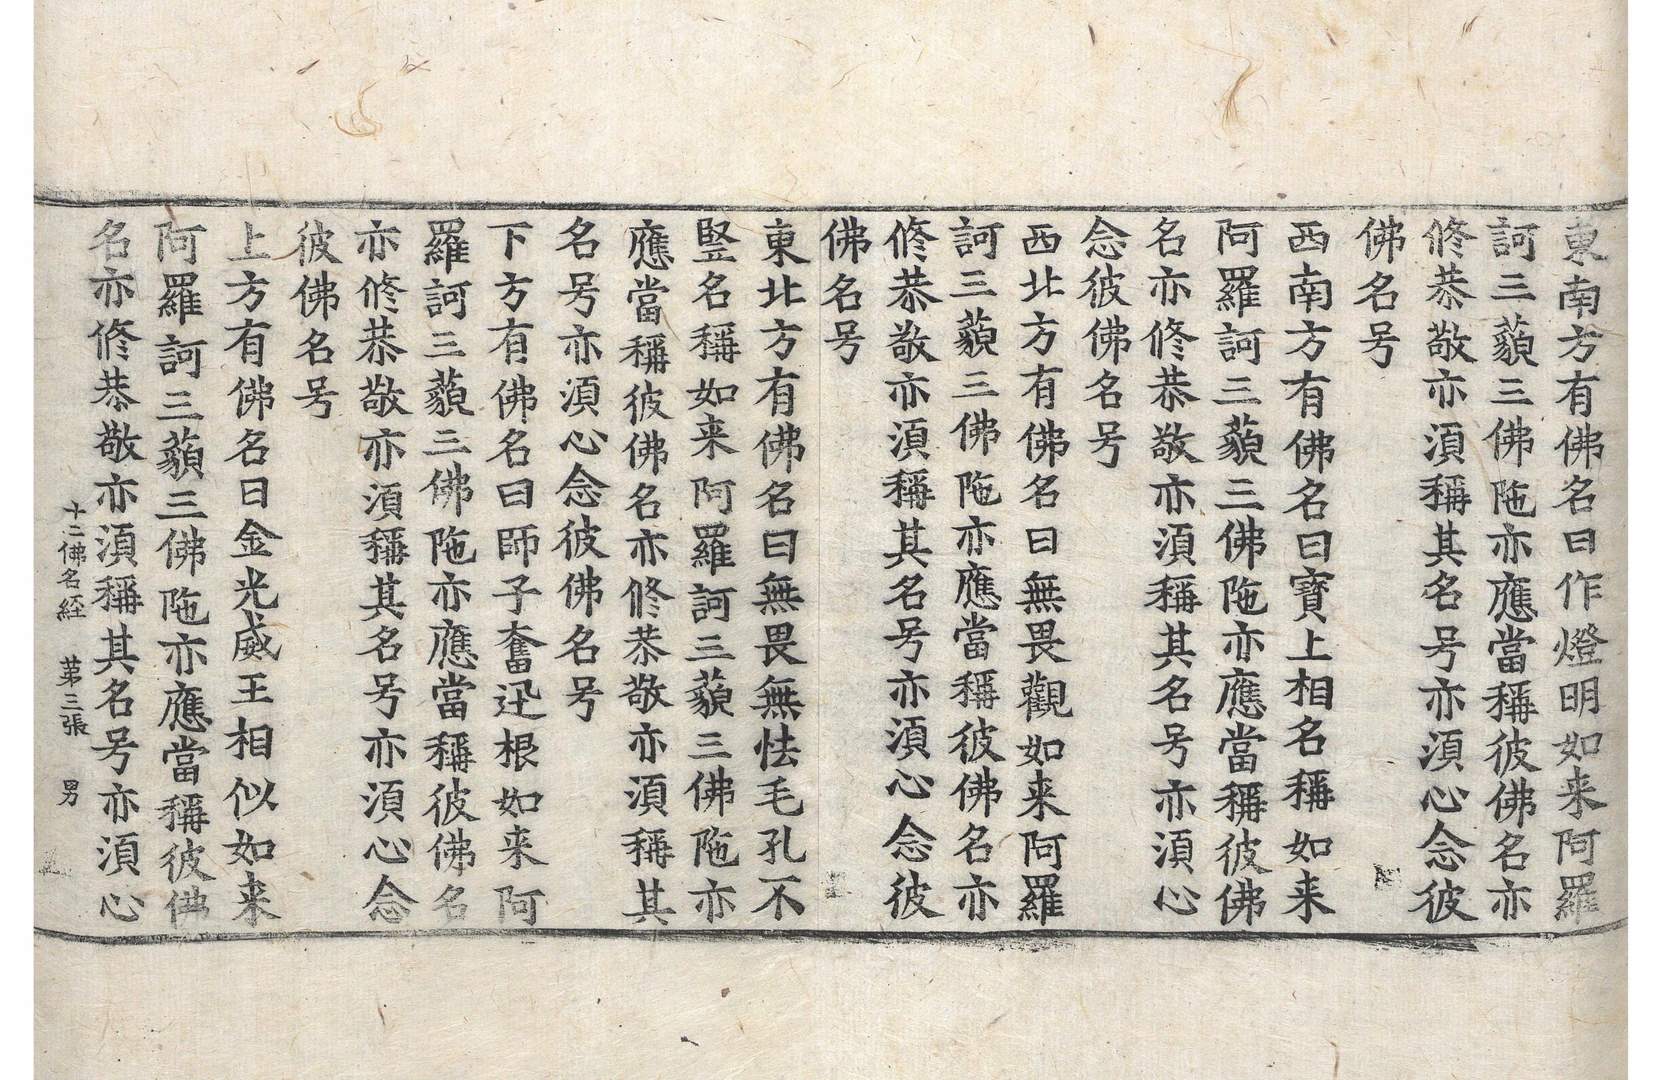 東南方有佛名曰作燈明如来阿羅
訶三藐三佛陁亦應當稱彼佛名亦
修恭敬亦湏稱其名号亦湏心念彼
佛名号
西南方有佛名曰寳上相名稱如来
阿羅訶三藐三佛陁亦應當稱彼佛
名亦修恭敬亦湏稱其名号亦湏心
念彼佛名号
西北方有佛名曰無畏觀如来阿羅
訶三藐三佛陁亦應當稱彼佛名亦
修恭敬亦湏稱其名号亦湏心念彼
佛名号
東北方有佛名曰無畏無怯毛孔不
竪名稱如来阿羅訶三藐三佛陁亦
應當稱彼佛名亦修恭敬亦湏稱其
名号亦湏心念彼佛名号
下方有佛名曰師子奮迅根如来阿
羅訶三藐三佛陁亦應當稱彼佛名
亦修恭敬亦湏稱其名号亦湏心念
彼佛名号
上方有佛名曰金光威王相似如来
阿羅訶三藐三佛陁亦應當稱彼佛
名亦修恭敬亦湏稱其名号亦湏心
十二佛名経 第三張 男